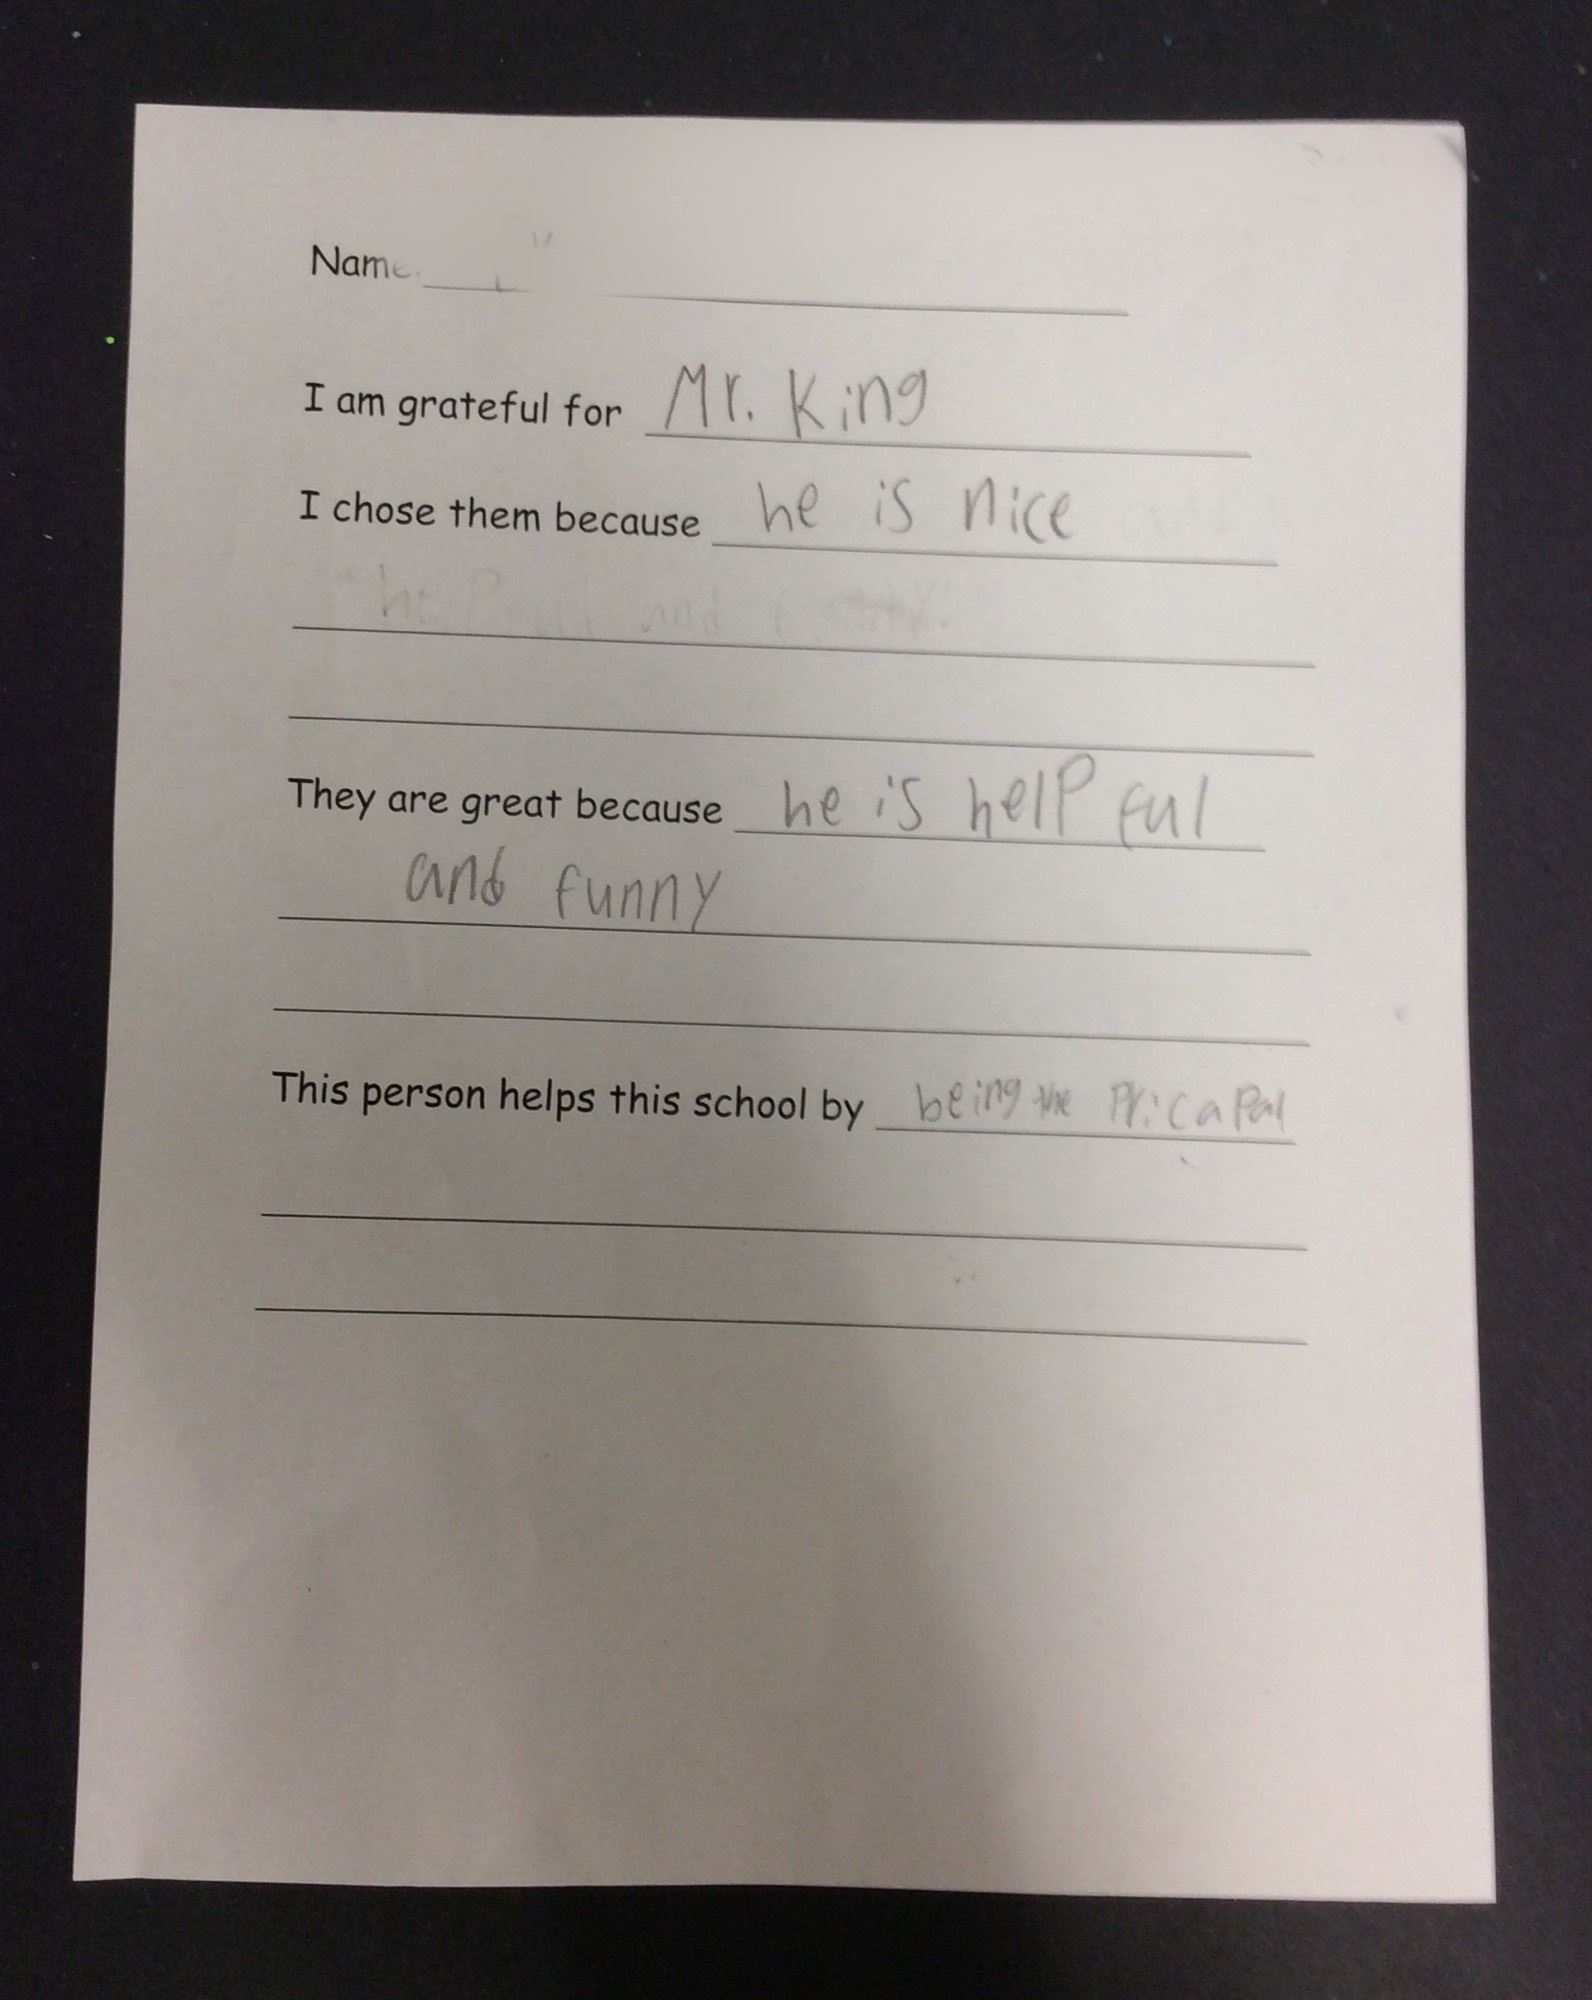 Name
I am grateful for Mr. King
I chose them because he is nice
They are great because he is helpful
and funny
This person helps this school by being the Pricapal